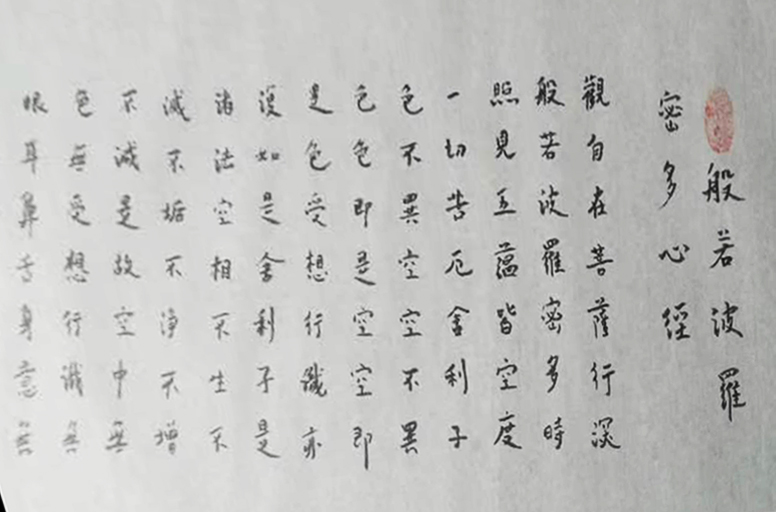 般若波羅
密多心經
觀自在菩薩行深
般若波羅密多時
照見五蘊皆空度
一切苦厄舍利子
色不異空空不異
色色即是空空即
是色受想行識亦
復如是舍利子是
諸法空相不生不
滅不垢不淨不增
不減是故空中無
色無受想行識無
眼耳鼻舌身意無